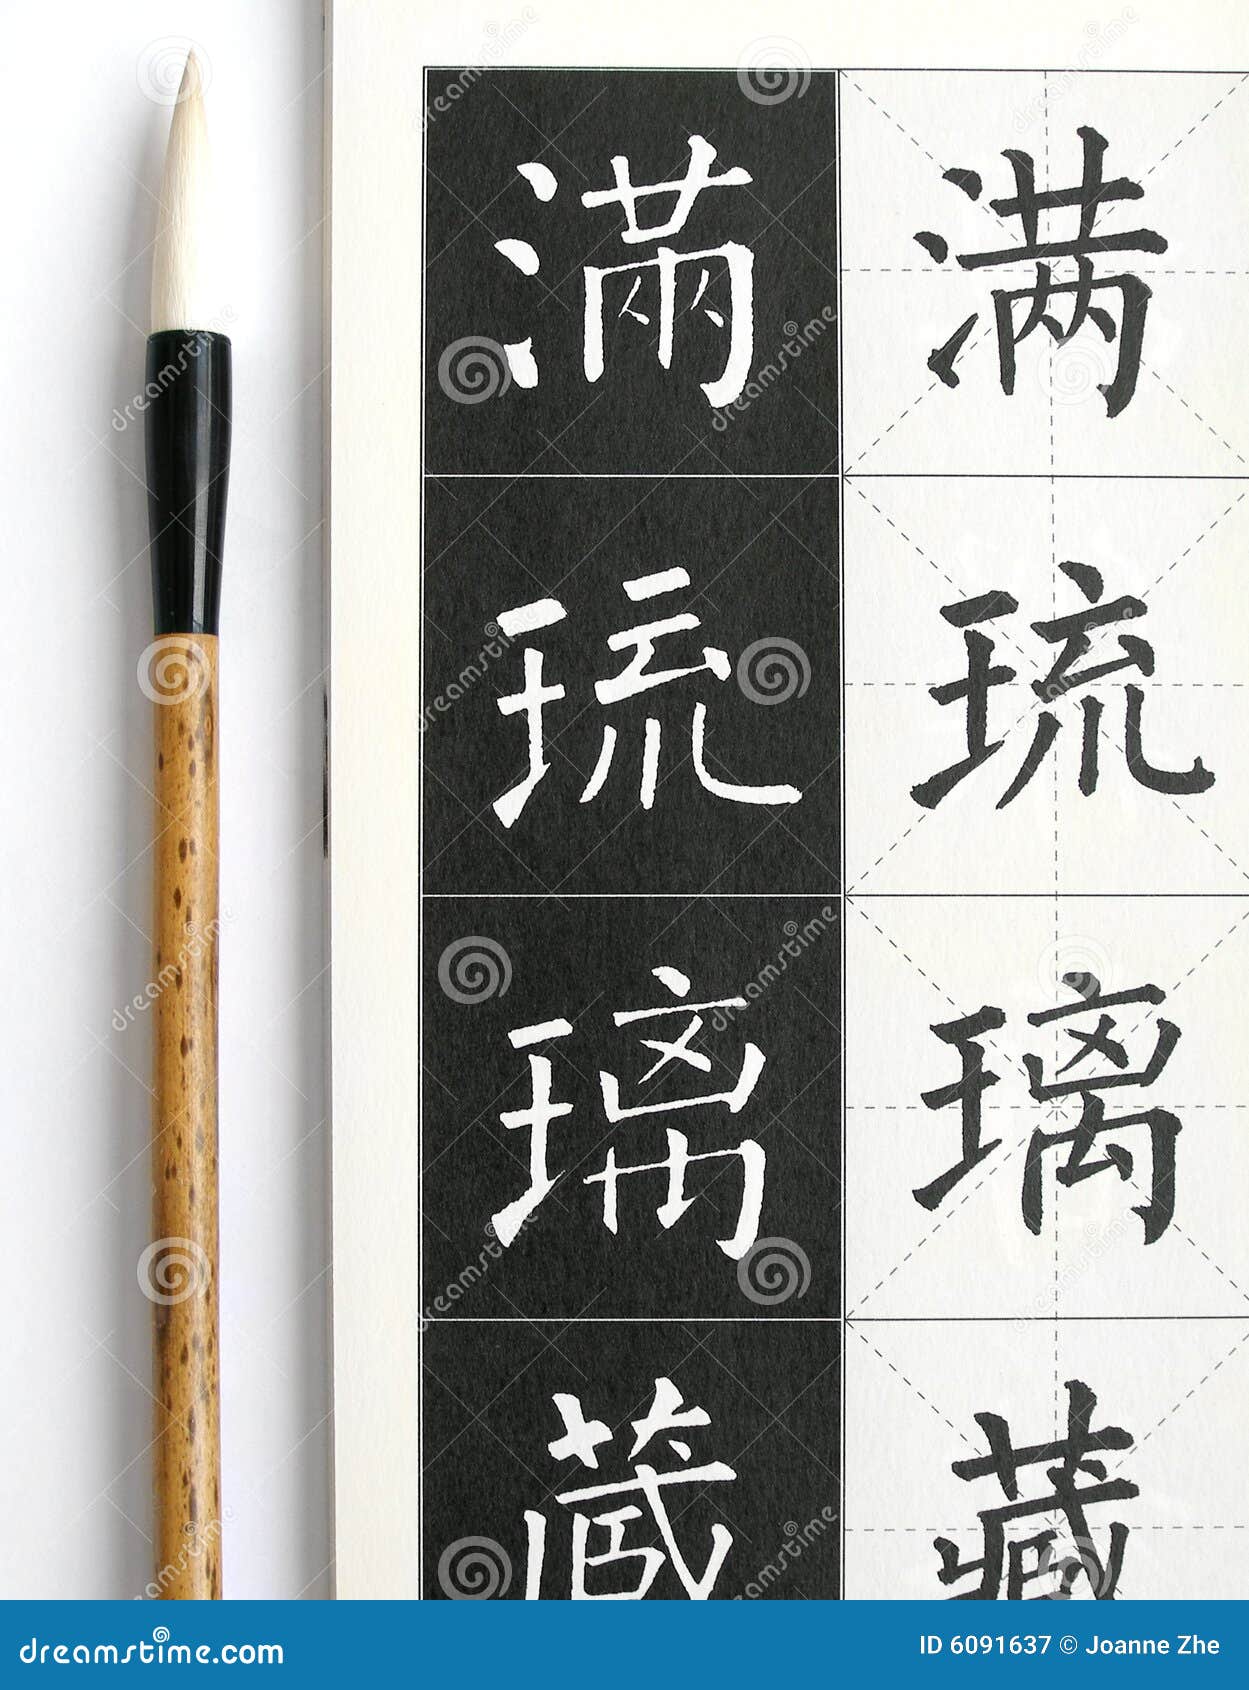 滿 满
琉 琉
璃 璃
藏 藏
dreamstime.com
ID 6091637 © Joanne Zhe